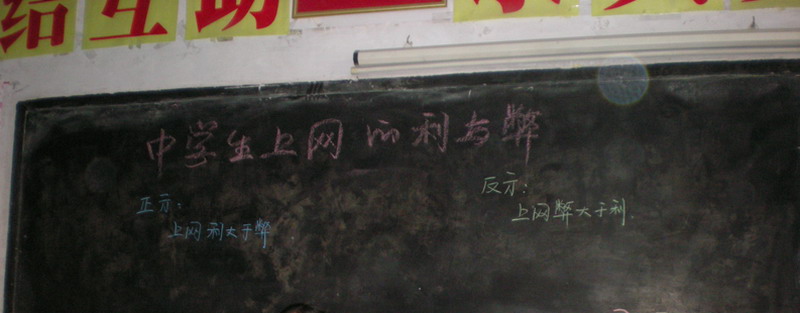 结互助
中学生上网的利与弊
正示:
上网利大于弊
反示:
上网弊大于利.